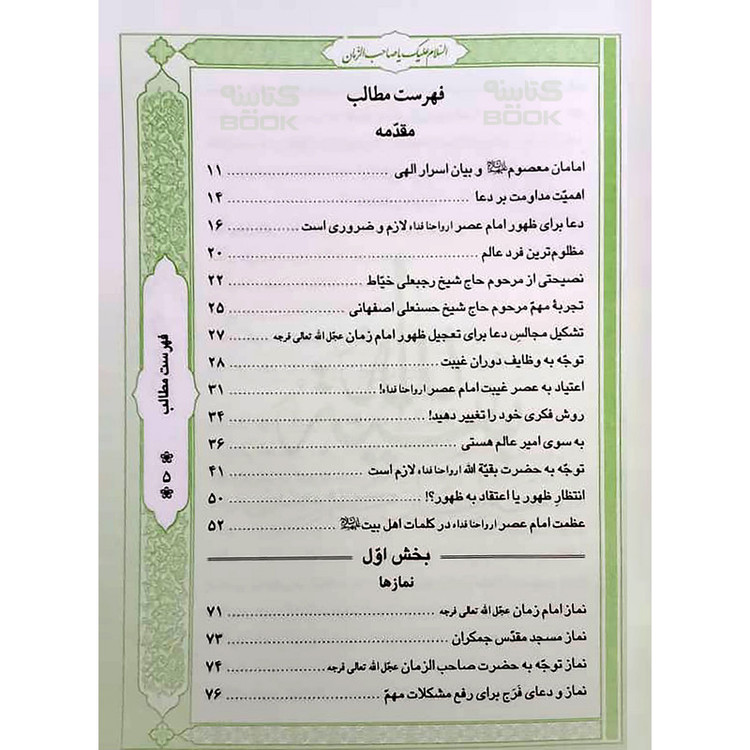 السلام علیک یا صاحب الزمان
کتابنو
BOOK
کتابنو
BOOK
فهرست مطالب
مقدّمه
امامان معصوم علیهم السلام و بیان اسرار الهی ۱۱
اهمیّت مداومت بر دعا ۱۴
دعا برای ظهور امام عصر ارواحنا فداه لازم و ضروری است ۱۶
مظلوم‌ترین فرد عالم ۲۰
نصیحتی از مرحوم حاج شیخ رجبعلی خیّاط ۲۲
تجربهٔ مهمّ مرحوم حاج شیخ حسنعلی اصفهانی ۲۵
تشکیل مجالسِ دعا برای تعجیل ظهور امام زمان عجّل الله تعالی فرجه ۲۷
توجّه به وظایف دوران غیبت ۲۸
اعتیاد به عصر غیبت امام عصر ارواحنا فداه! ۳۱
روش فکری خود را تغییر دهید! ۳۴
به سوی امیر عالم هستی ۳۶
توجّه به حضرت بقیّة الله ارواحنا فداه لازم است ۴۱
انتظارِ ظهور یا اعتقاد به ظهور؟! ۵۰
عظمت امام عصر ارواحنا فداه در کلمات اهل بیت علیهم السلام ۵۲
بخش اوّل
نمازها
نماز امام زمان عجّل الله تعالی فرجه ۷۱
نماز مسجد مقدّس جمکران ۷۳
نماز توجّه به حضرت صاحب الزمان عجّل الله تعالی فرجه ۷۴
نماز و دعای فَرَج برای رفع مشکلات مهمّ ۷۶
فهرست مطالب
۵